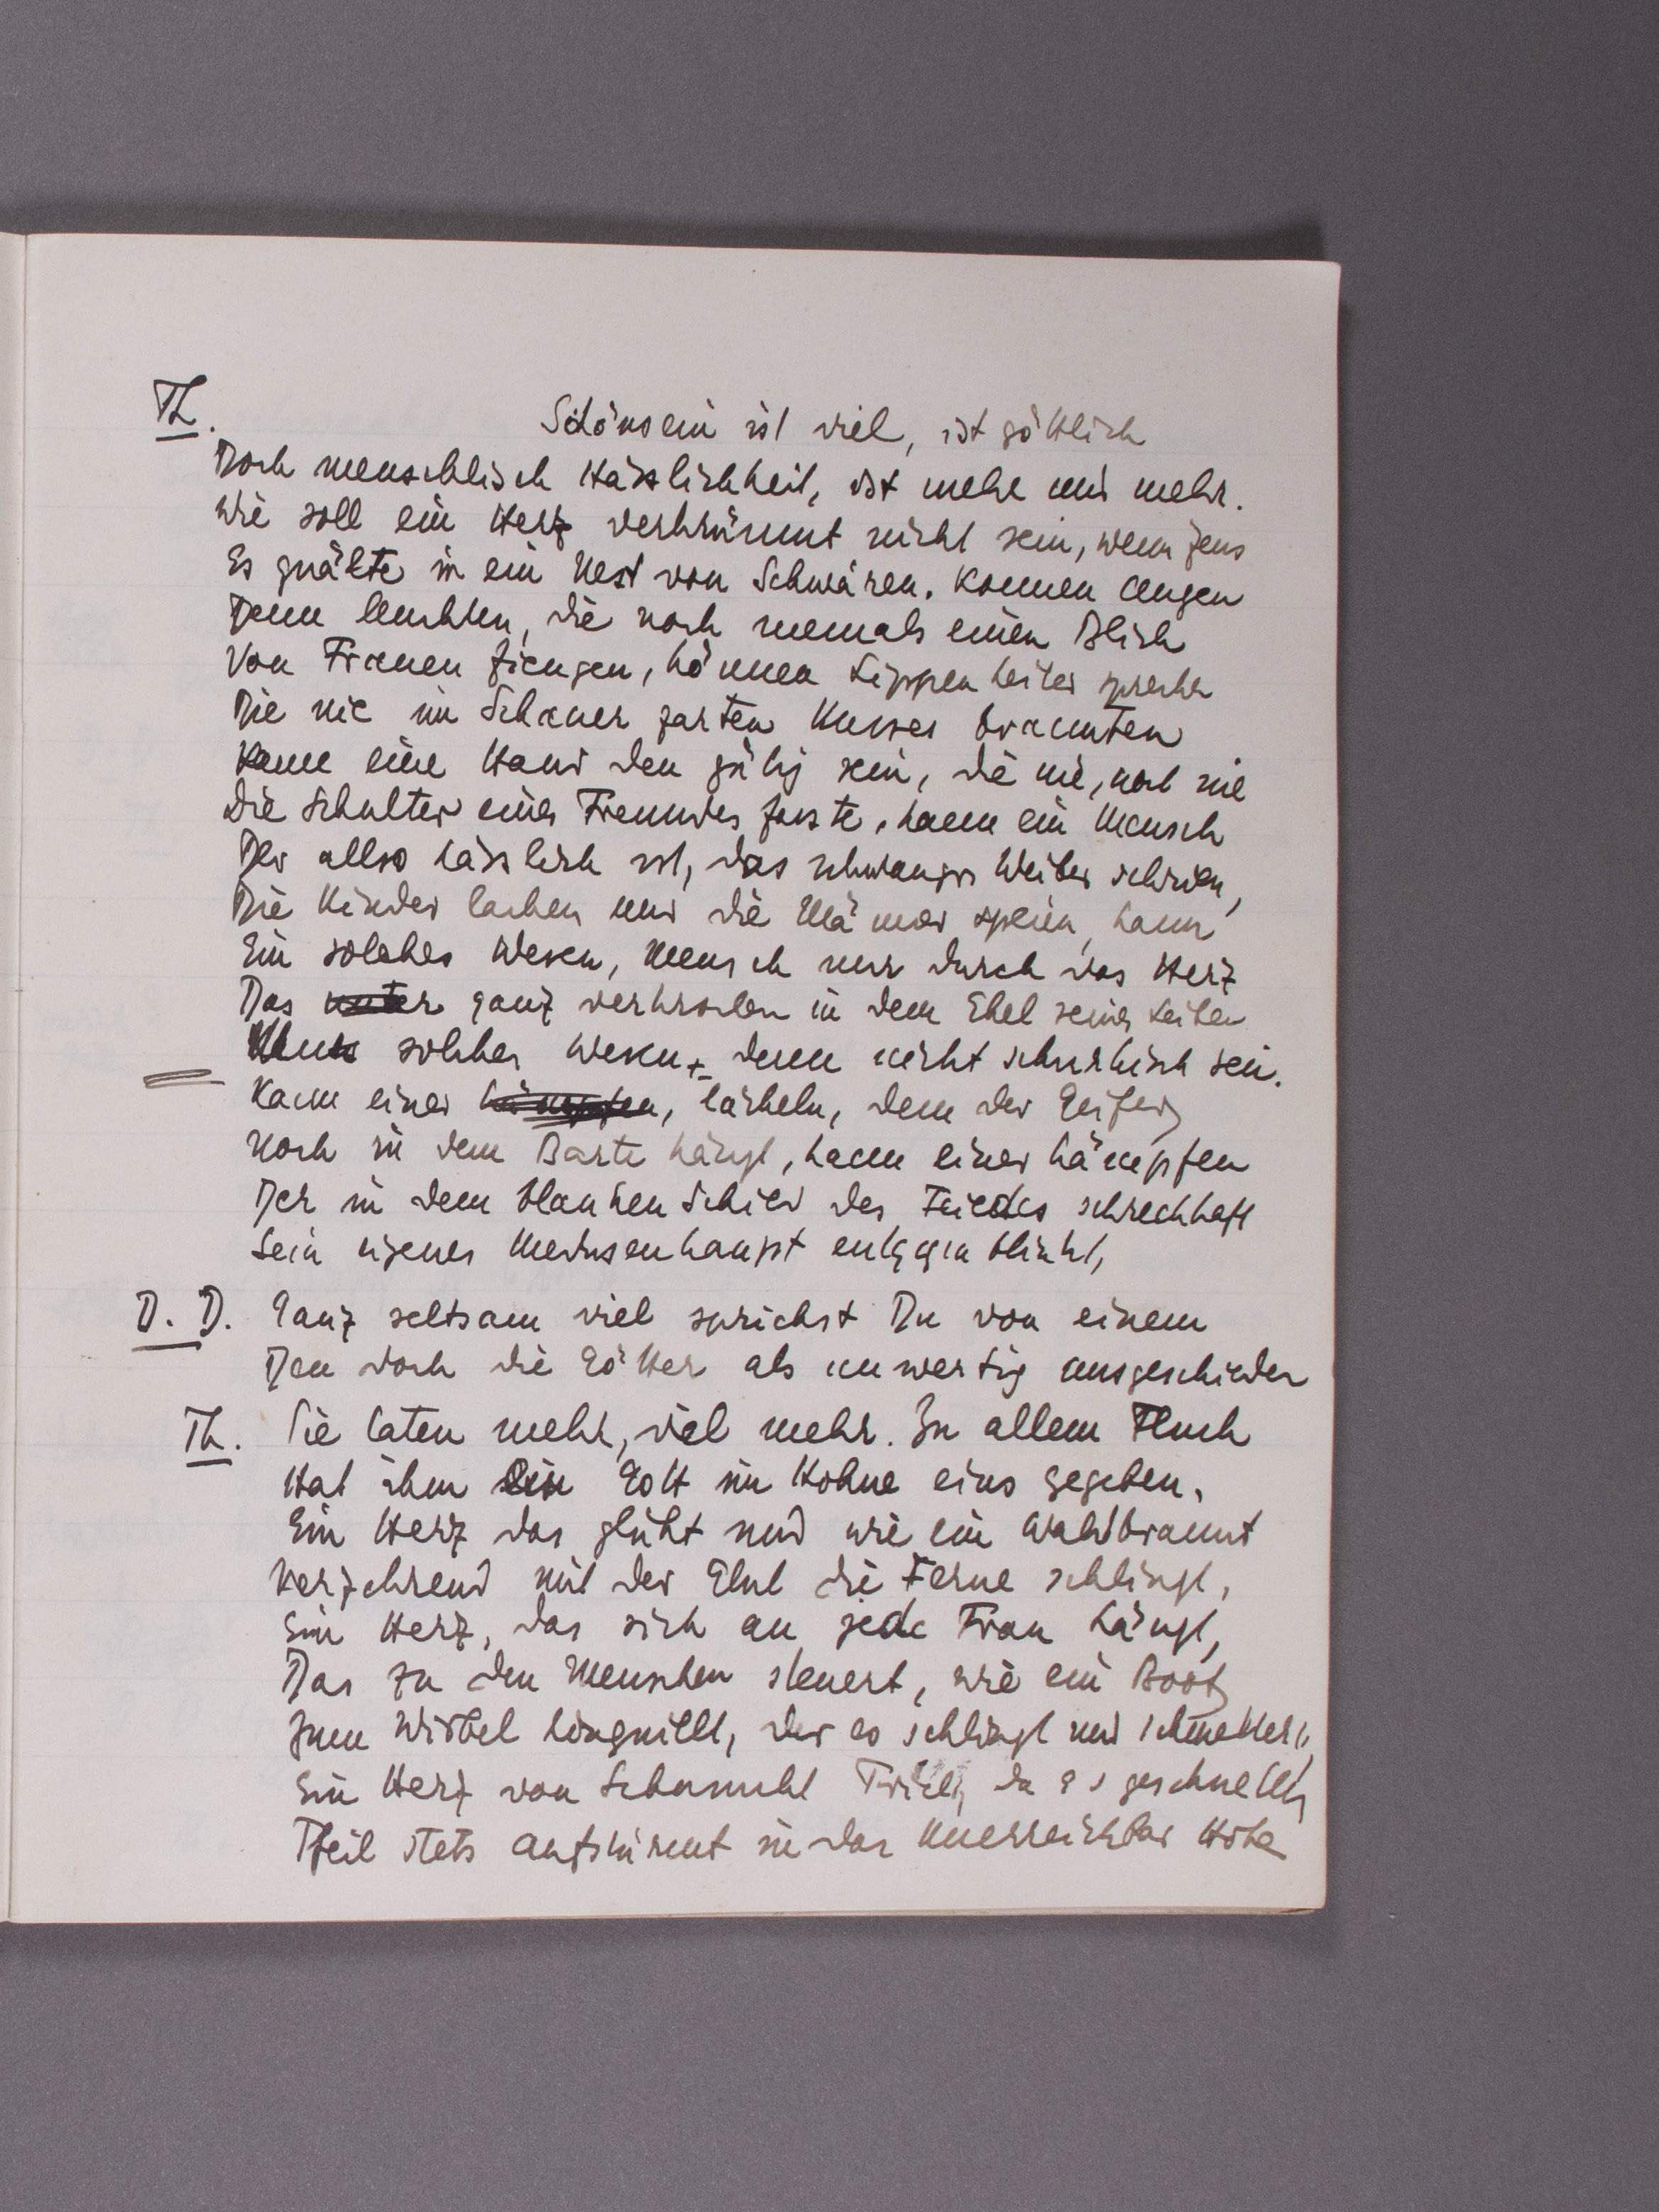 Th. Schönsein ist viel, ist göttlich
Doch menschlich Hässlichkeit, ist mehr und mehr.
Wie soll ein Herz verkrümmt nicht sein, wenn Zeus
Es quälte in ein Nest von Schwären. Können Augen
Denn leuchten, die noch niemals einen Blick
Von Frauen fiengen, können Lippen heiter sprechen
Die nie im Schauer zarten Kusses brannten
Kann eine Hand den gütig sein, die nie, noch nie
Die Schulter eines Freundes fasste, kann ein Mensch
Der allso hässlich ist, das schwangre Weiber schrien,
Die Kinder lachen und die Männer spein, kann
Ein solches Wesen, Mensch nur durch das Herz
Das unter ganz verkrochen in dem Ekel seines Leibes
solches Wesen denn nicht schurkisch sein.
Kann einer kämpfen, lächeln, dem der Geifer
Noch in dem Barte hängt, kann einer kämpfen
Der in dem blanken Schild des Feindes schreckhaft
Sein eigenes Medusenhaupt entgegen blinkt,
D. D. Ganz seltsam viel sprichst Du von einem
Den doch die Götter als unwertig ausgeschieden
Th. Sie taten mehr, viel mehr. Zu allem Fluch
Hat ihm ein Gott im Hohne eins gegeben.
Ein Herz das glüht und wie ein Waldbrannt
Verzehrend mit der Glut die Ferne schlingt,
Ein Herz, das sich an jede Frau hängt,
Das zu den Menschen steuert, wie ein Boot
Zum Wirbel hinquillt, der es schlingt und schmettert,
Ein Herz von Sehnsucht da es geschnellt
Pfeil stets aufstürmt in das Unerreichbar Hohe